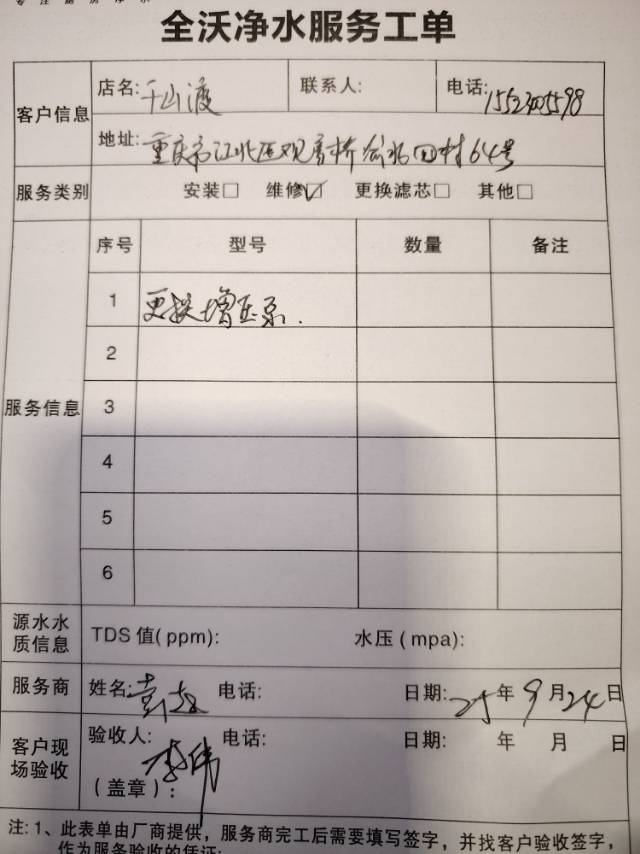 全沃净水服务工单
客户信息 店名: 千山渡 联系人: 电话:
地址: 重庆市江北区观音桥 村64号
服务类别 安装□ 维修☑ 更换滤芯□ 其他□
服务信息 序号 型号 数量 备注
1 更换增压泵.
2
3
4
5
6
源水水质信息 TDS 值(ppm): 水压(mpa):
服务商 姓名: 电话: 日期: 25年9月24日
客户现场验收 验收人: 李伟 电话: 日期: 年 月 日
(盖章):
注: 1、此表单由厂商提供，服务商完工后需要填写签字，并找客户验收签字，
作为服务验收的凭证;